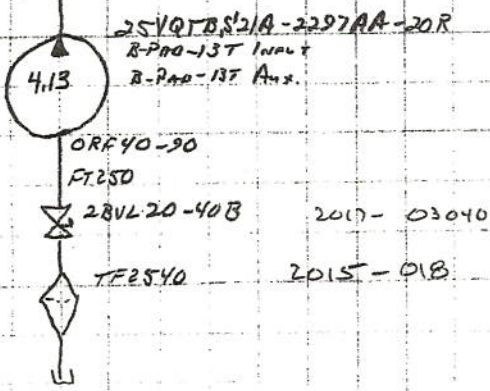 25VQTBS'21A-2297AA-20R
B-PAD-13T INPUT
B-PAD-13T Aux.
4.13
ORF40-90
FT250
2BVL20-40B
2017- 03040
TF2540
2015-018